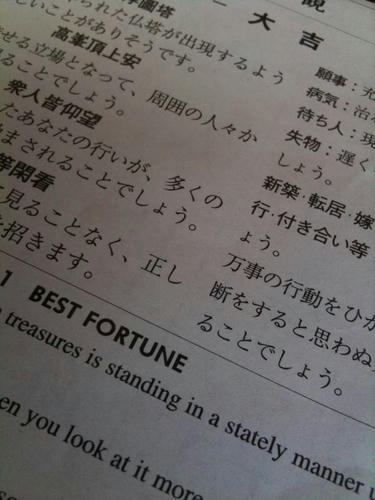 大吉
られた仏塔が出現するよう
いことがありそうです。
高峯頂上安
せる立場となって、周囲の人々か
ることでしょう。
衆人皆仰望
たあなたの行いが、多くの
まされることでしょう。
等閑看
見ることなく、正し
招きます。
願事：
病気：治
待ち人：現
失物：遅く
しょう。
新築・転居・嫁
行・付き合い等
ょう。
万事の行動をひか
断をすると思わぬ
ることでしょう。
1 BEST FORTUNE
treasures is standing in a stately manner
en you look at it more